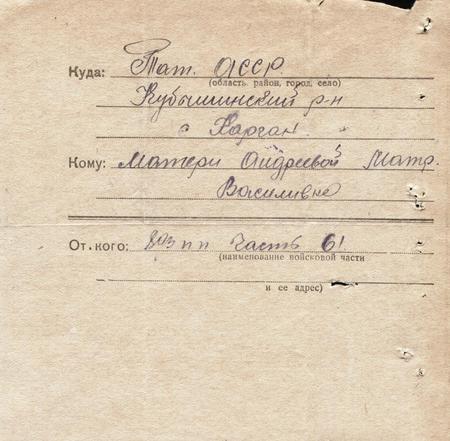 Куда: Тат. АССР.
(область, район, город, село)
Кубышинский р-н
с Карган.
Кому: Матери Андреевой Матр.
Василивне
От. кого: 803 пп Часть 61
(наименование войсковой части
и ее адрес)